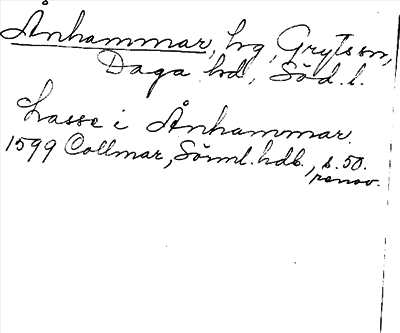 Ånhammar, hg, Gryts sn,
Daga hd, Söd. l.
Lasse i Ånhammar.
1599 Collmar, Sörml. hdb., s. 50.
renov.